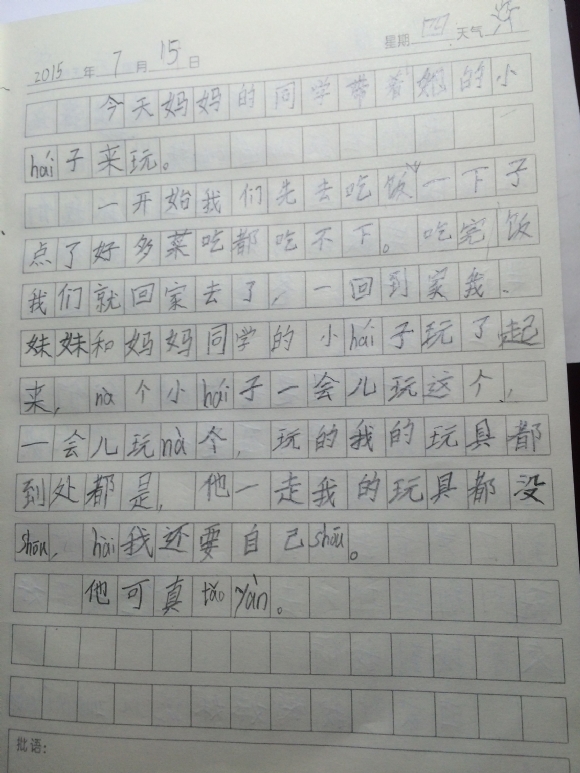 2015年7月15日 星期四 天气
今天妈妈的同学带着她的小
hái子来玩。
一开始我们先去吃饭一下子
点了好多菜吃都吃不下。吃完饭
我们就回家去了，一回到家我、
妹妹和妈妈同学的小hái子玩了起
来，nà个小hái子一会儿玩这个，
一会儿玩nà个，玩的我的玩具都
到处都是，他一走我的玩具都没
shōu，hài我还要自己shōu。
他可真tǎoyàn。
批语：